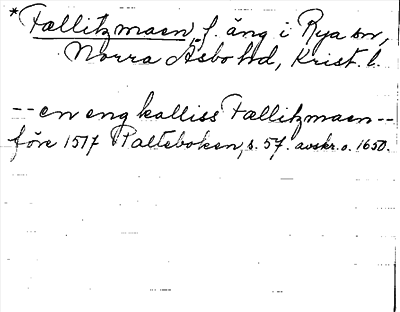 *Fællitzmaen, f. äng i Rya sn,
Norra Åsbo hd, Krist. l.
-- en eng kalliss Fællitzmaen --
före 1517 Palteboken, s. 57. avskr. o. 1650.